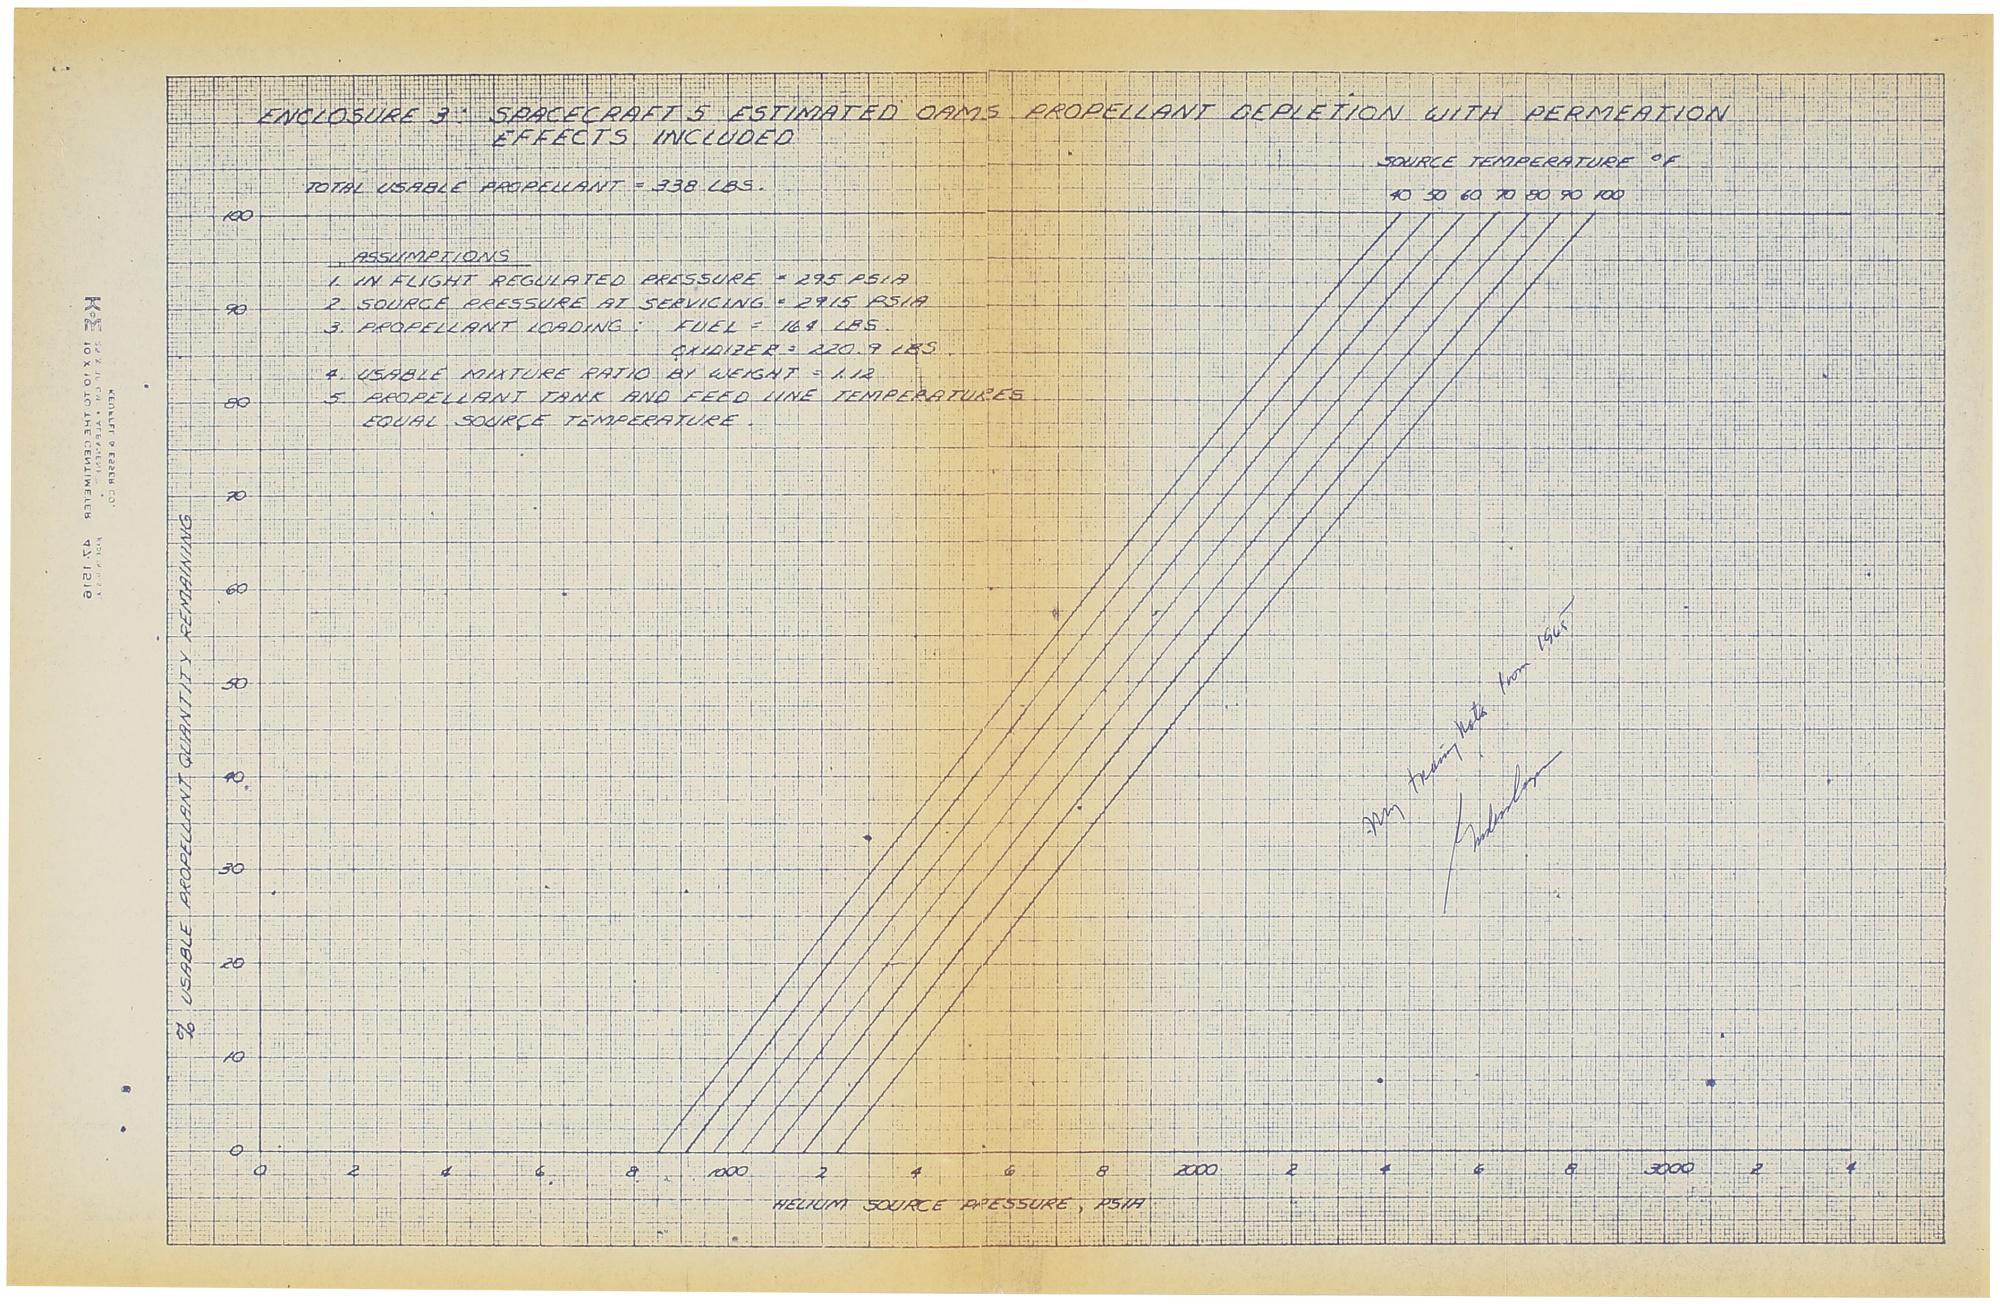 ENCLOSURE 3: SPACECRAFT 5 ESTIMATED OAMS PROPELLANT DEPLETION WITH PERMEATION
EFFECTS INCLUDED
SOURCE TEMPERATURE °F
40 50 60 70 80 90 100
TOTAL USABLE PROPELLANT = 338 LBS.
ASSUMPTIONS
1. IN FLIGHT REGULATED PRESSURE = 295 PSIA
2. SOURCE PRESSURE AT SERVICING = 2915 PSIA
3. PROPELLANT LOADING: FUEL = 164 LBS.
OXIDIZER = 220.9 LBS.
4. USABLE MIXTURE RATIO BY WEIGHT = 1.12
5. PROPELLANT TANK AND FEED LINE TEMPERATURES
EQUAL SOURCE TEMPERATURE.
% USABLE PROPELLANT QUANTITY REMAINING
100
90
80
70
60
50
40
30
20
10
0
0 2 4 6 8 1000 2 4 6 8 2000 2 4 6 8 3000 2 4
HELIUM SOURCE PRESSURE, PSIA
My training note from 1965
K&E 10 X 10 TO THE CENTIMETER 47 1516
KEUFFEL & ESSER CO.